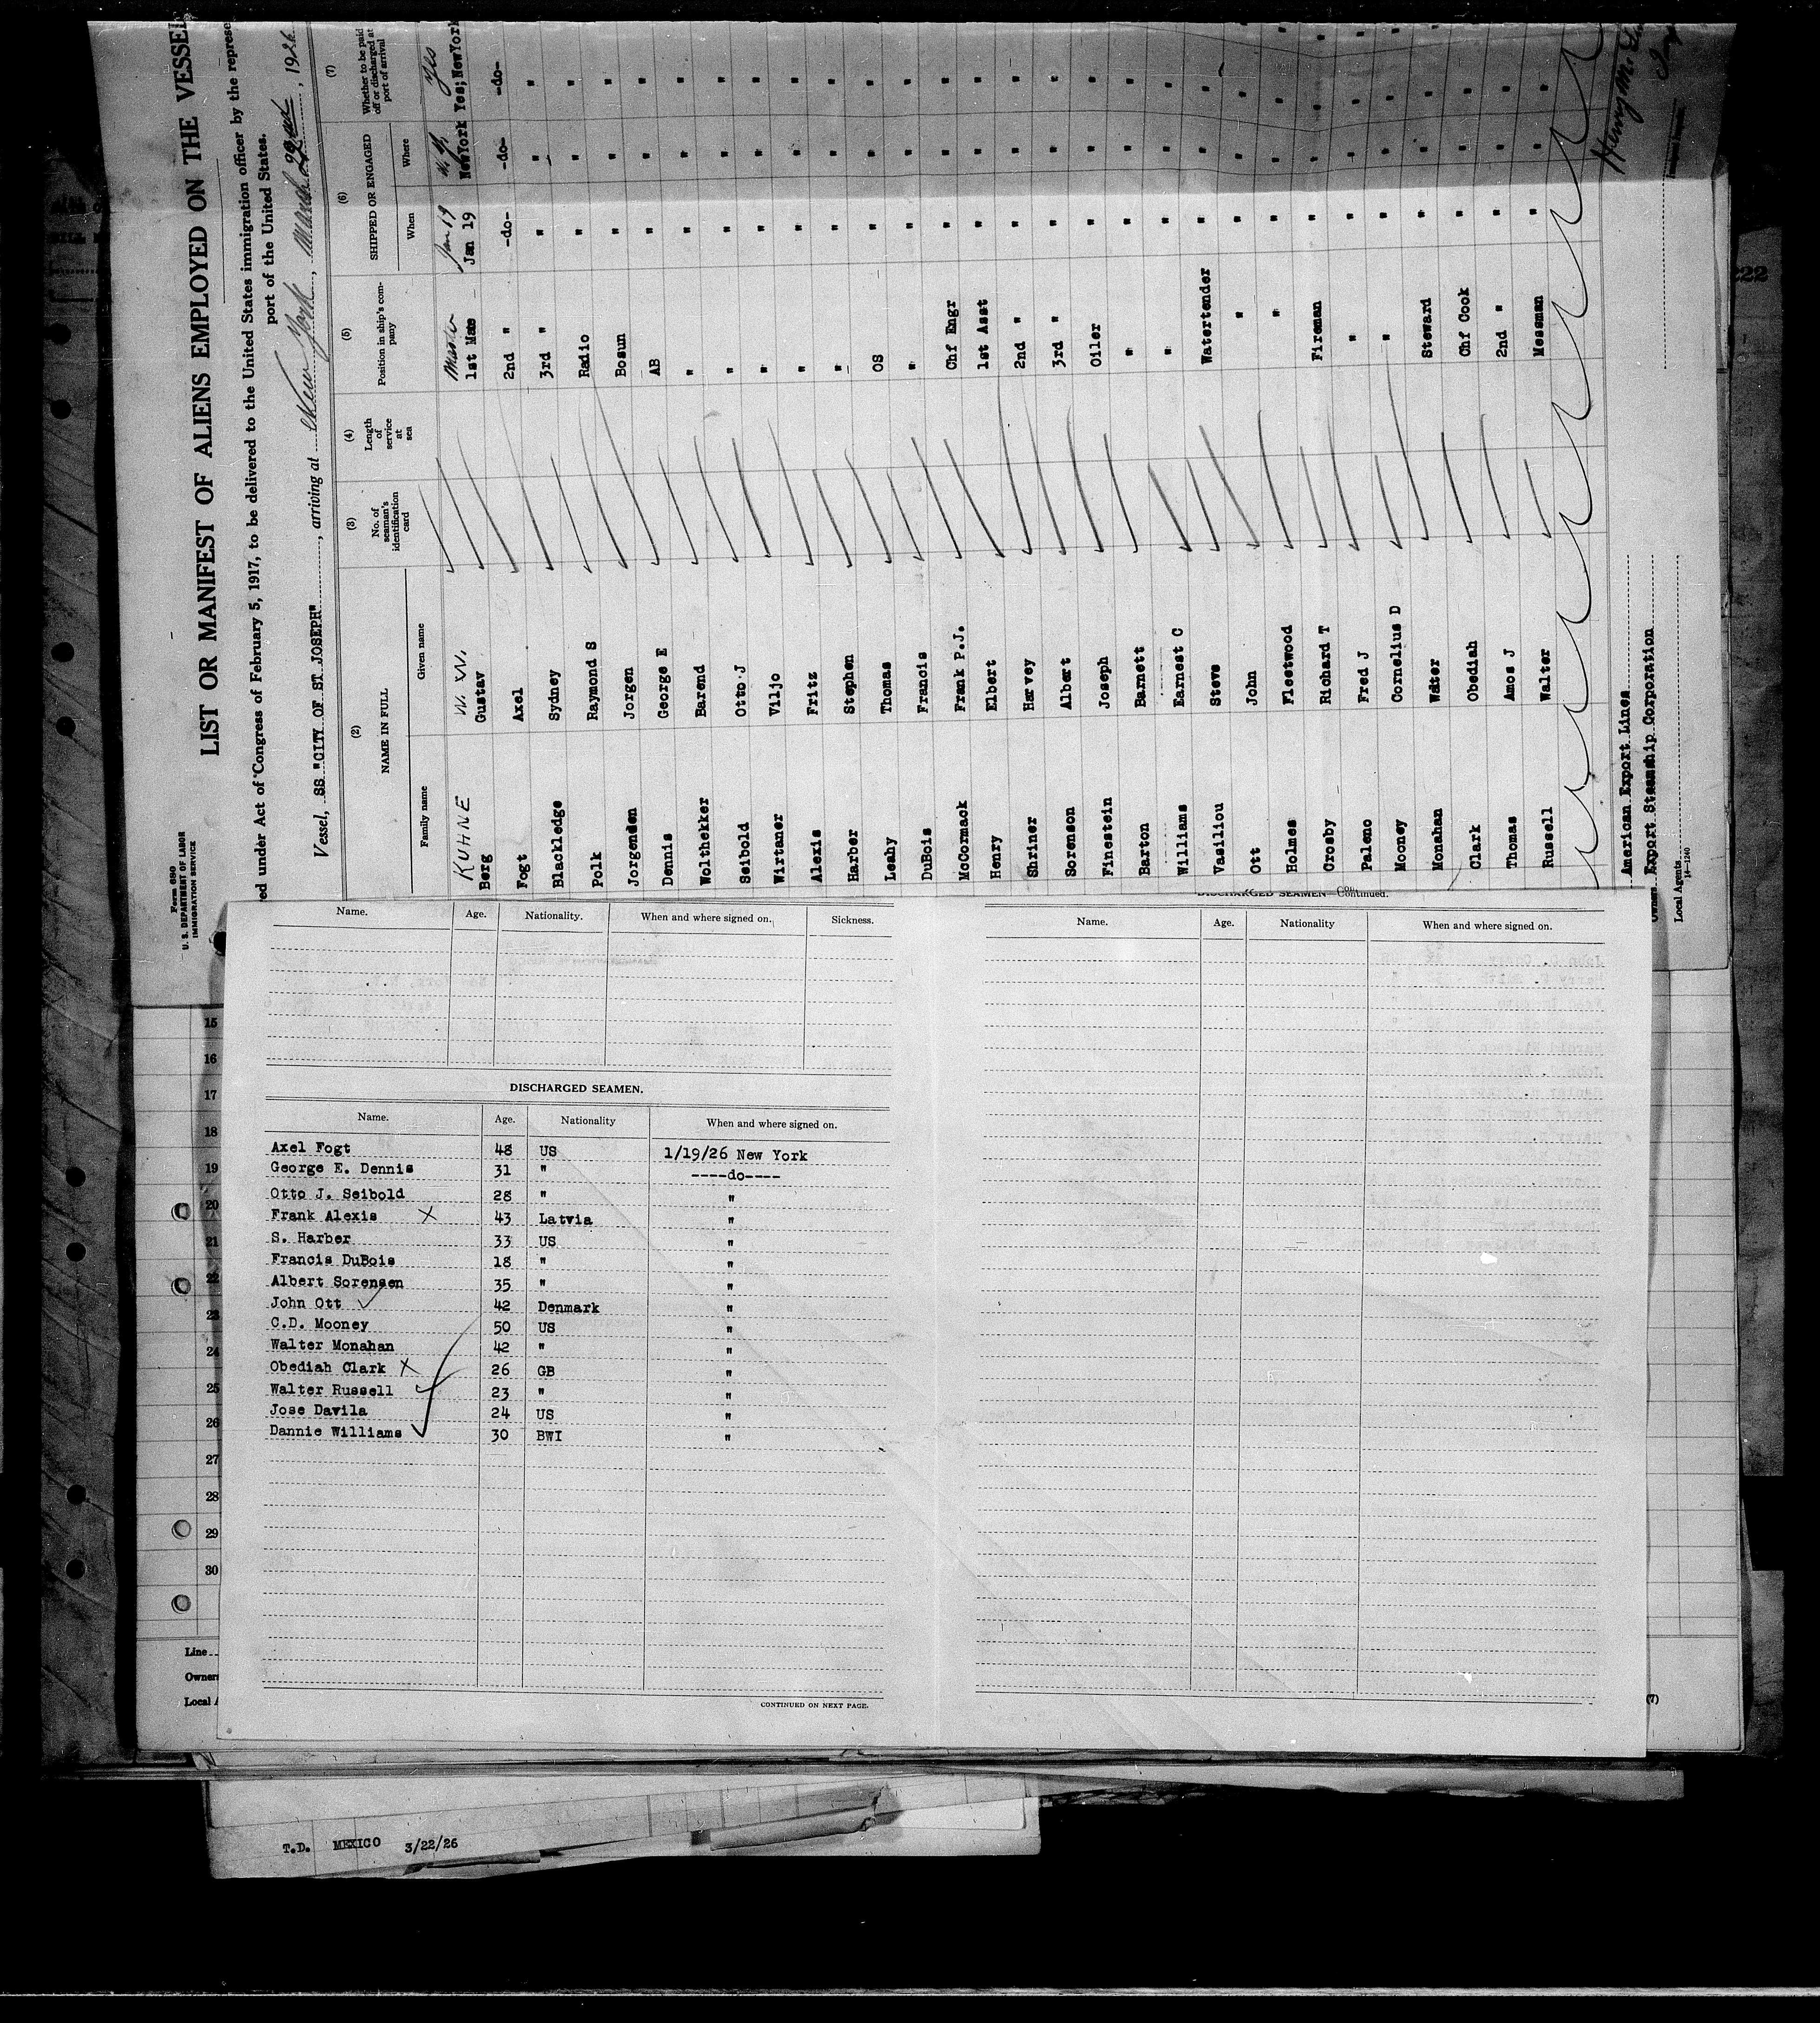 Form 680
U. S. DEPARTMENT OF LABOR
IMMIGRATION SERVICE
LIST OR MANIFEST OF ALIENS EMPLOYED ON THE VESSEL
ed under Act of Congress of February 5, 1917, to be delivered to the United States immigration officer by the represe
port of the United States.
Vessel, SS "CITY OF ST. JOSEPH", arriving at New York, March 22nd, 1926
(2) (3) (4) (5) (6) (7)
NAME IN FULL No. of seaman's identification card Length of service at sea Position in ship's company SHIPPED OR ENGAGED Whether to be paid off or discharged at port of arrival
Family name Given name When Where
KUHNE W. W. Master Jan 19 N.Y. Yes
Berg Gustav 1st Mate Jan 19 NewYork Yes; NewYork
Fogt Axel 2nd " -do- -do- -do-
Blackledge Sydney 3rd " " " "
Polk Raymond S Radio " " "
Jorgenden Jorgen Bosun " " "
Dennis George E AB " " "
Wolthekker Barend " " " "
Seibold Otto J " " " "
Wirtaner Viljo " " " "
Alexis Fritz " " " "
Harber Stephen " " " "
Leahy Thomas OS " " "
DuBois Francis " " " "
McCormack Frank P.J. Chf Engr " " "
Henry Elbert 1st Asst " " "
Shriner Harvey 2nd " " " "
Sorenson Albert 3rd " " " "
Finestein Joseph Oiler " " "
Barton Barnett " " " "
Williams Earnest C " " " "
Vasiliou Steve Watertender " " "
Ott John " " " "
Holmes Fleetwood " " " "
Crosby Richard T Fireman " " "
Paleno Fred J " " " "
Mooney Cornelius D " " " "
Monahan Walter Steward " " "
Clark Obediah Chf Cook " " "
Thomas Amos J 2nd " " " "
Russell Walter Messman " " "
American Export Lines
Owners Export Steamship Corporation
Local Agents
14-1240
Henry M.
Name. Age. Nationality. When and where signed on. Sickness.
DISCHARGED SEAMEN.
Name. Age. Nationality When and where signed on.
Axel Fogt 48 US 1/19/26 New York
George E. Dennis 31 " ----do----
Otto J. Seibold 28 " "
Frank Alexis X 43 Latvia "
S. Harber 33 US "
Francis DuBois 18 " "
Albert Sorensen 35 " "
John Ott ✓ 42 Denmark "
C.D. Mooney 50 US "
Walter Monahan 42 " "
Obediah Clark X 26 GB "
Walter Russell ✓ 23 " "
Jose Davila 24 US "
Dannie Williams ✓ 30 BWI "
CONTINUED ON NEXT PAGE.
DISCHARGED SEAMEN—Continued.
Name. Age. Nationality When and where signed on.
15
16
17
18
19
20
21
22
23
24
25
26
27
28
29
30
Line
Owners
Local A
3
222
T.D. MEXICO 3/22/26